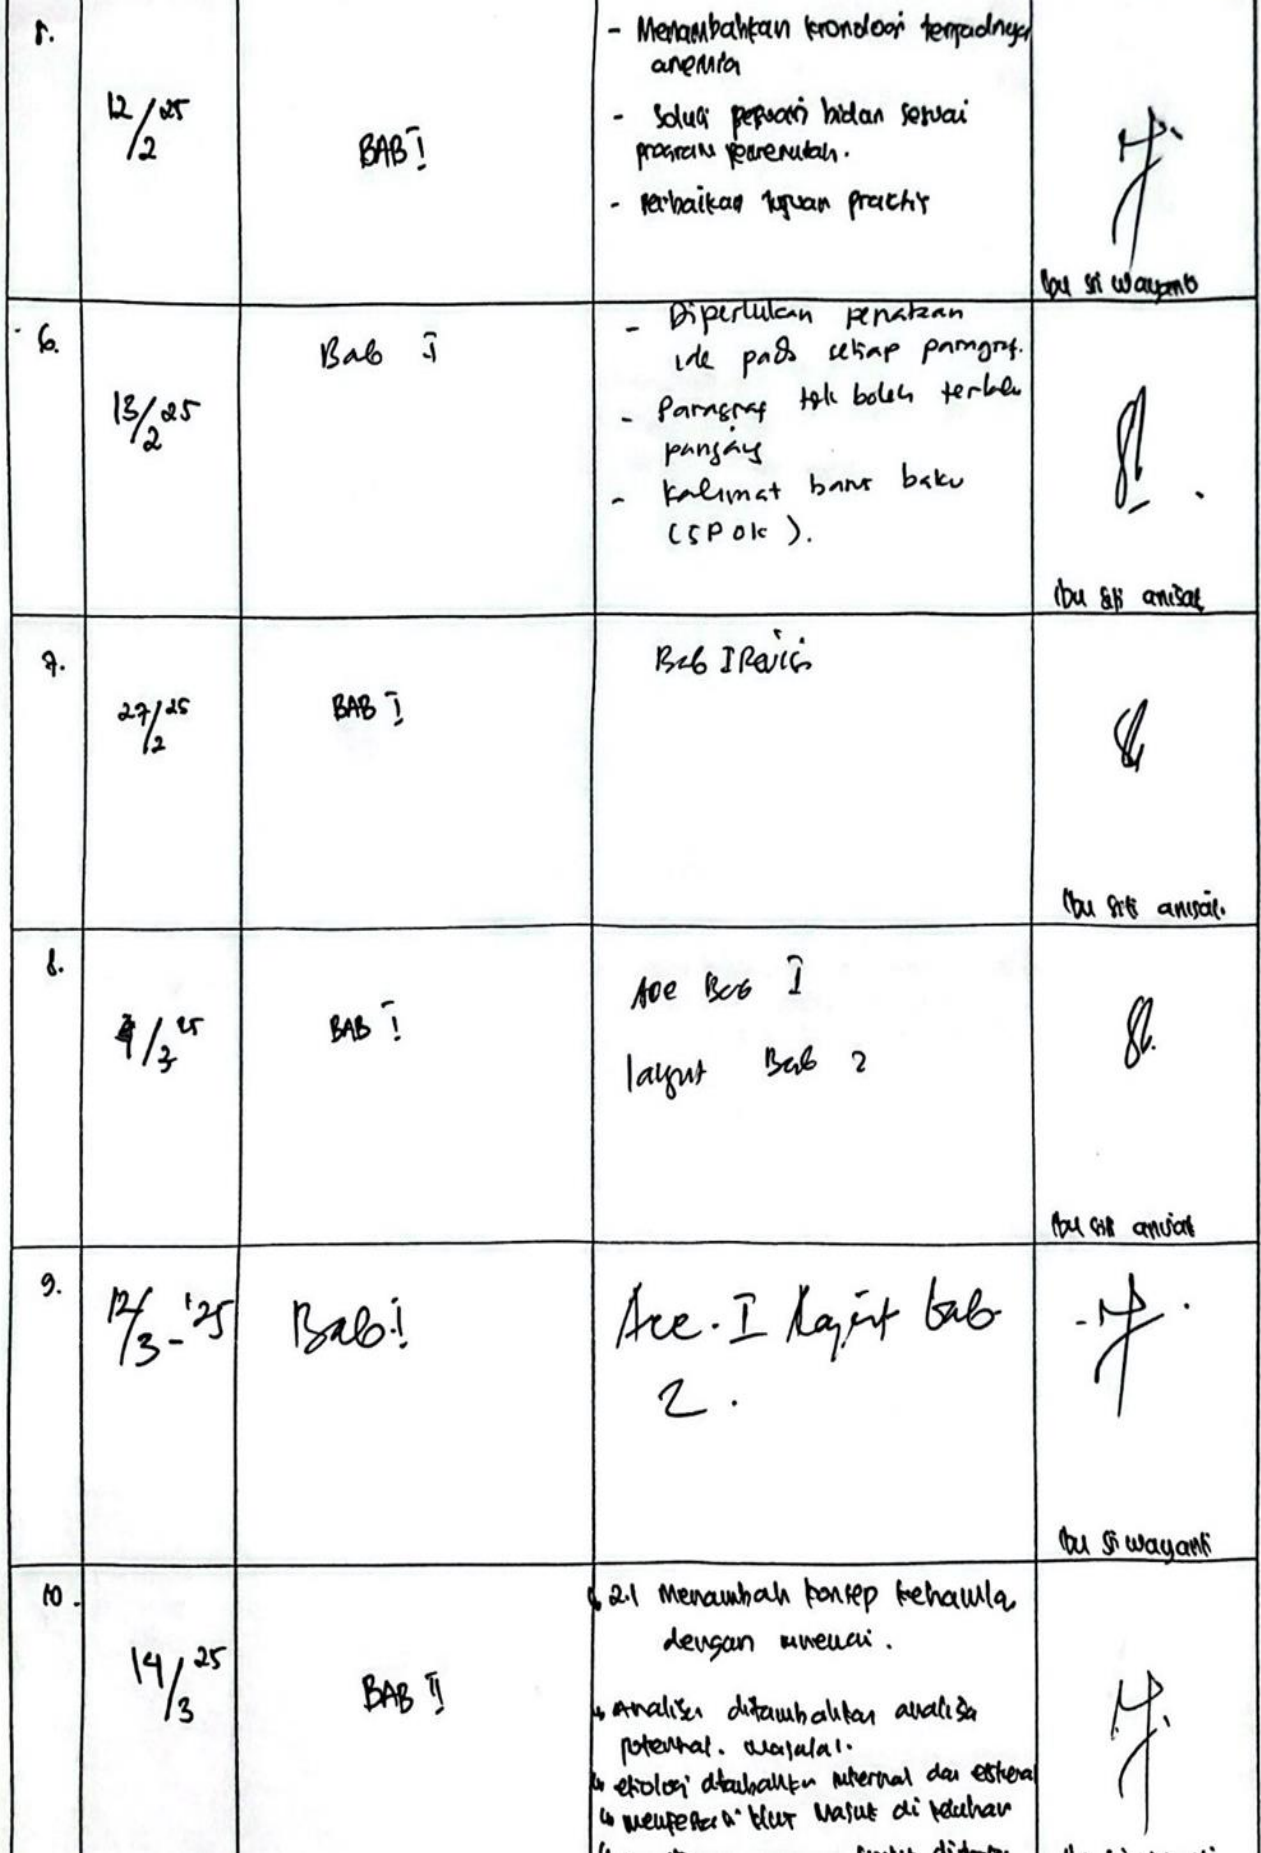 5.
12/2 25
BAB I
- Menambahkan kronologi terjadinya
anemia
- Solusi bidan sesuai
program pemerintah.
- Perbaikan tujuan praktis
Ibu Sri Wayanti
6.
13/2 25
Bab I
- Diperlukan penataan
ide pada setiap paragraf.
- Paragraf tdk boleh terlalu
panjang
- Kalimat harus baku
(SPOK).
Ibu Siti anisah
7.
27/2 25
BAB I
Bab I Revisi
Ibu Siti anisah.
8.
/3 25
BAB I
Acc Bab I
lanjut Bab 2
Ibu Siti anisah
9.
12/3-'25
Bab I
Acc. I lanjut bab
2.
Ibu Sri wayanti
10.
14/3 25
BAB II
2.1 Menambah konsep kehamila
dengan anemia.
↳ Analisa ditambahkan analisa
potensial. masalah.
↳ etiologi ditambahkan internal dan eksternal
↳ masuk di keluhan